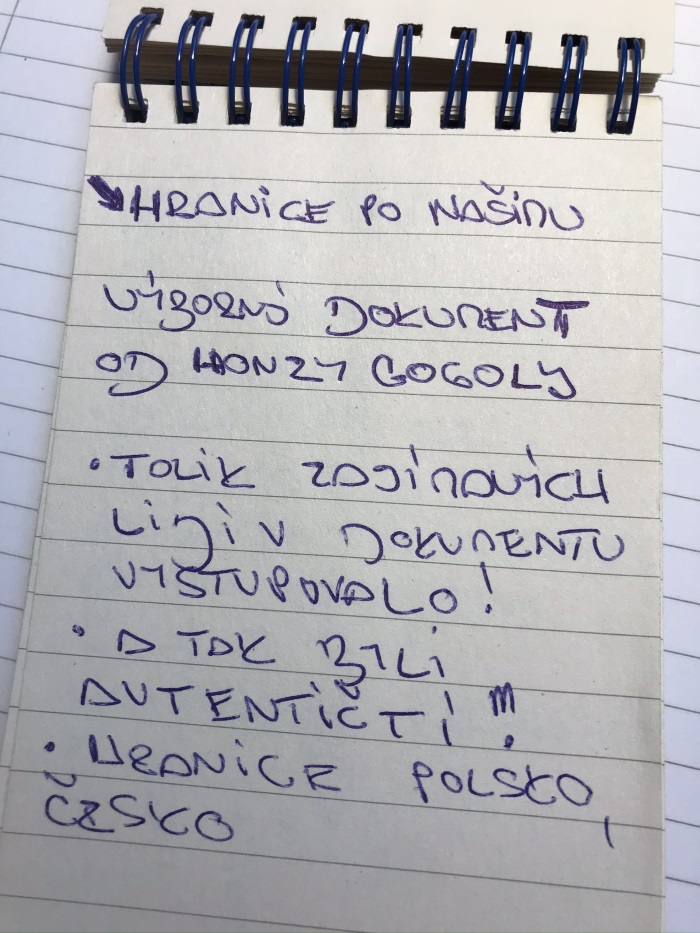 HRANICE PO NAŠIMU
VÝBORNÝ DOKUMENT
OD HONZY GOGOLY
• TOLIK ZAJÍMAVÝCH
LIDÍ V DOKUMENTU
VYSTUPOVALO!
• A TAK BYLI
AUTENTIČTÍ !!!
• HRANICE POLSKO,
ČESKO